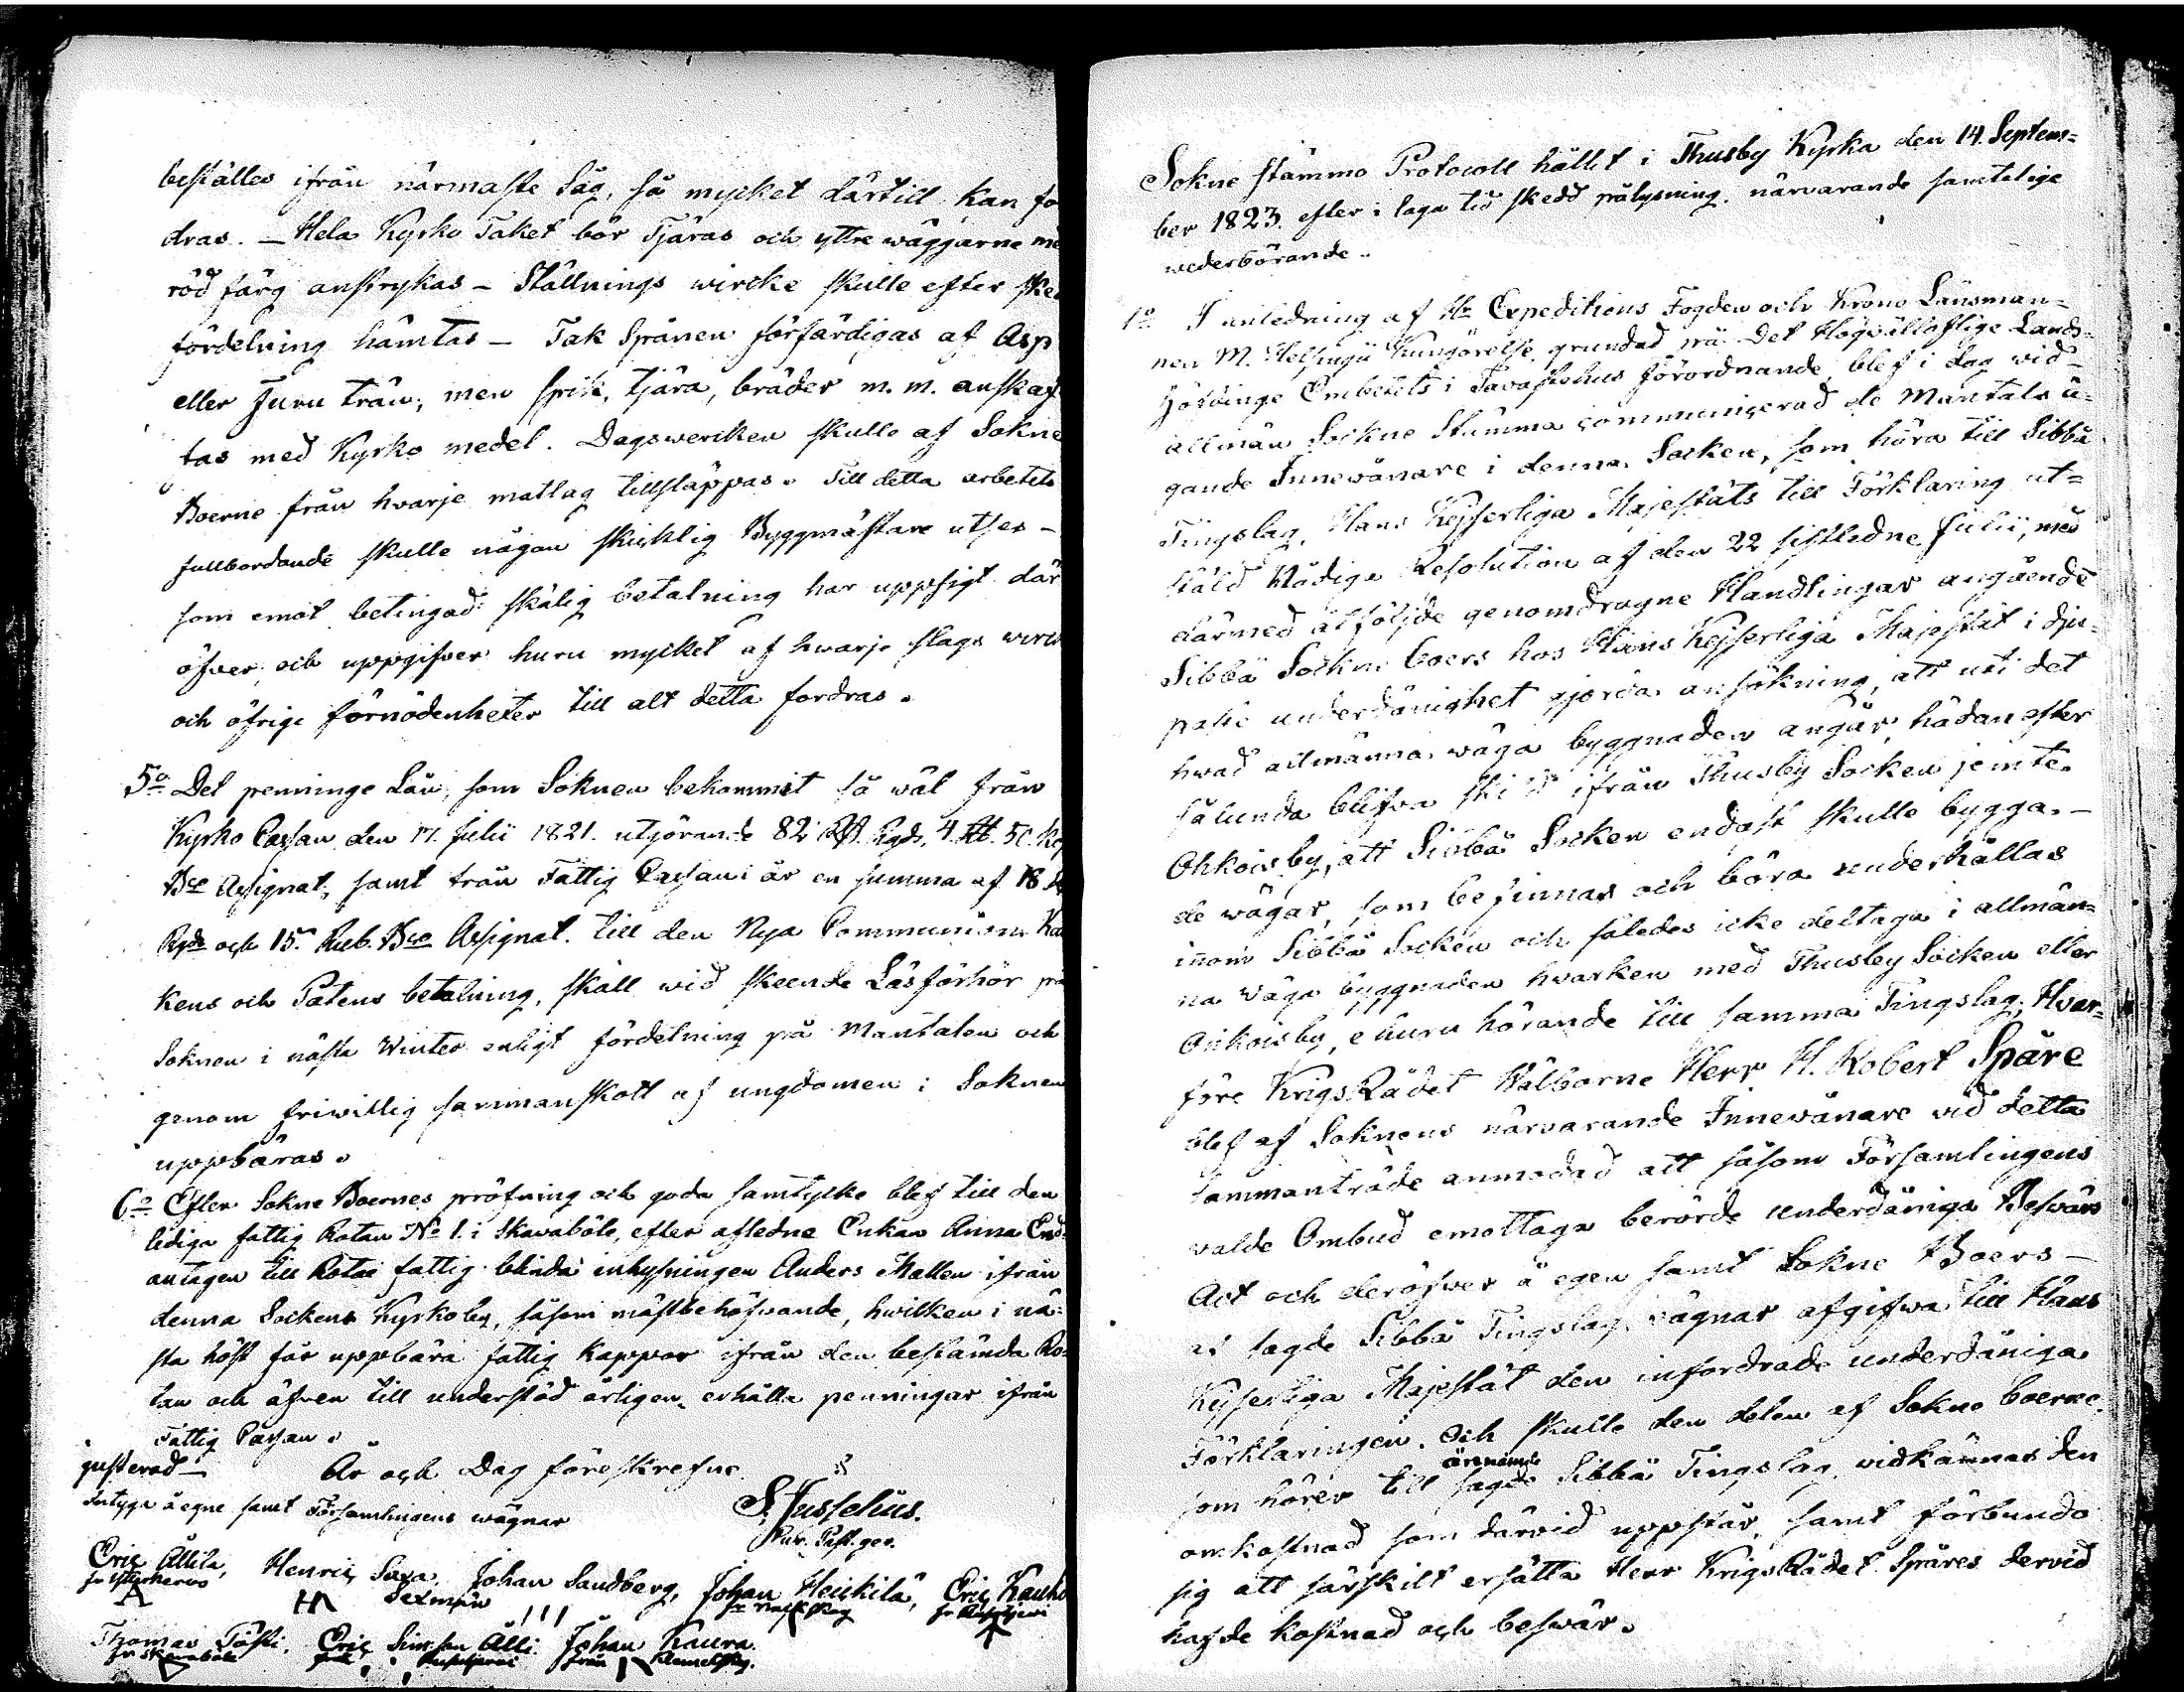 beställes ifrån närmaste Såg, så mycket därtill kan fo
dras. – Hela Kyrko Taket bör Tjäras och yttre wäggarne me
röd färg anstrykas – Ställnings wircke skulle efter ske
fördelning hämtas – Tak Spånen förfärdigas af Asp
eller Furu trän; men spik, tjära, bräder m. m. anskaf
tas med Kyrko medel. Dagswercken skulle af Sokne
Boerne från hvarje matlag tillsläppas. Till detta arbetets
fullbordande skulle någon skicklig Byggmästare utses –
som emot betingad skälig betalning har uppsigt där
öfver, och uppgifver huru mycket af hwarje slags wirck
och öfrige förnödenheter till alt detta fordras.
5o Det penninge Lån, som Soknen bekommit så wäl från
Kyrko Cassan den 17. Julii 1821. utgörande 82 Rd. Rgds, 4 50. Kop
Bco Assignat, samt från Fattig Cassan i år en summa af 18
Rgds och 15. Rub. Bco Assignat. till den Nya Communions Kal
kens och Patens betalning, skall wid skeende Läsförhör på
Soknen i nästa Winter enligt fördelning på Mantalen och
genom friwillig sammanskott af ungdomen i Soknen
uppbäras.
6o Efter Sokne Boernes pröfning och goda samtycke blef till den
lediga fattig Rotan No 1. i Skavaböle, efter afledne Enkan Anna End.
antagen till Rotae fattig blinda inhysningen Anders Matten ifrån
denna Sockens Kyrkoby, såsom mästbehöfwande, hwilken i nä-
sta höst får uppbära fattig kappor ifrån den bestämda Ro-
tan och äfven till understöd årligen erhålla penningar ifrån
Fattig Cassan.
justerad – År och Dag föreskrefne
Intyga å egne samt Församlingens wägnar S. Jusselius.
Past. ger.
Eric Allila, Henric Saxa, Johan Sandberg, Johan Heickilä, Eric Kauho
Sexman
Thomas Eric Simsson Alli. Johan Kaura.
fr Skavaböle från
Sokne stämmo Protocoll hållet i Thusby Kyrka den 14. Septem-
ber 1823. efter i laga tid skedd pålysning, närvarande samtelige
wederbörande.
1o I anledning af Hr Expeditions Fogden och Krono Länsman-
nen M. Helsingii Kungörelse, grundad på Det Högvälloflige Lands-
höfdinge Embetets i Tavastehus förordnande, blef i dag wid
allmän Sockne Stämma communicerad de Mantals ä-
gande Innewånare i denna Socken, som höra till Sibbå
Tingslag, Hans Kejserliga Majestäts till Förklaring ut-
ställd Nådiga Resolution af den 22 sistledne Julii, med
därmed åtföljde genomdragne Handlingar angående
Sibbå Sockne boers hos Hans Kejserliga Majestät i dju-
paste underdånighet gjorda ansökning, att uti det
hwad allmänna wäga byggnaden angår, hädanefter
sålunda blifva ifrån Thusby Socken jemte
Ohkoisby, att Sibbå Socken endast skulle bygga –
de wägar, som befinnas och böra underhållas
inom Sibbå Socken och således icke deltaga i allmän-
na Wäga byggnaden hvarken med Thusby Socken eller
Ohkoisby, ehuru hörande till samma Tingslag; Hvar-
före Krigs Rådet Wälborne Herr H. Robert Spåre
blef af Soknens närvarande Innewånare vid detta
sammanträde anmodad att såsom Församlingens
valde Ombud emottaga berörde underdåniga Besvärs
Act och deröfver å egen samt Sokne Boers –
af sagde Sibbå Tingslag, vägnar afgifwa till Hans
Kejserliga Majestät den infordrade underdåniga
Förklaringen. Och skulle den delen af Sokne boerne,
som hörer till sagde Sibbå Tingslag, vidkännas den
omkostnad som därvid uppstår, samt förbundo
sig att särskilt ersätta Herr Krigs Rådet Spåres dervid
hafde kostnad och beswär.